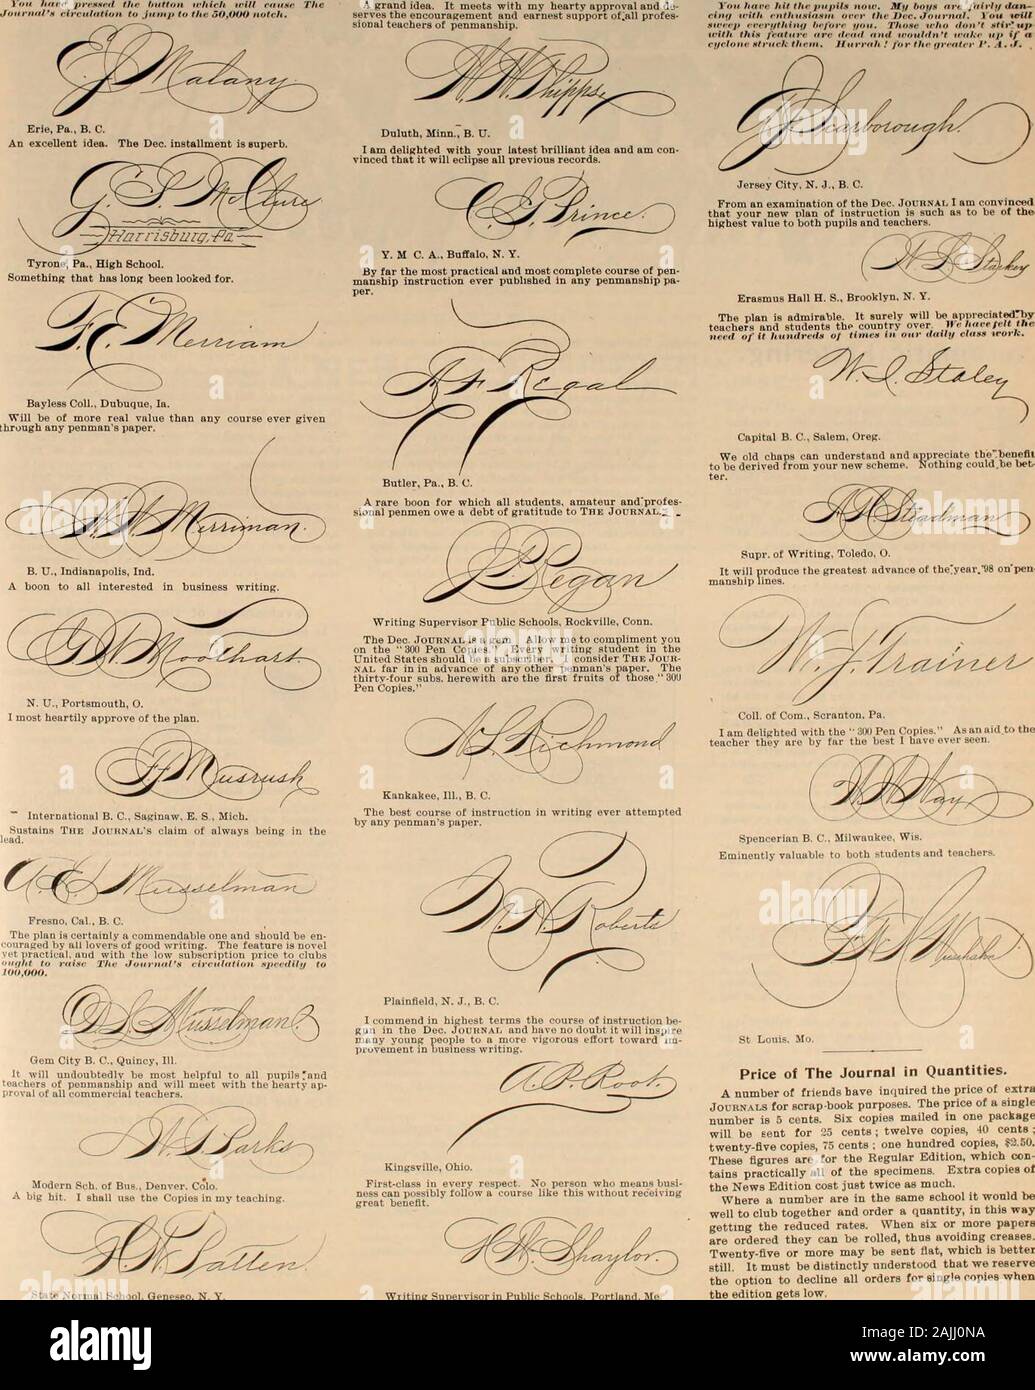 You have pressed the button which will cause The
Journal's circulation to jump to the 50,000 notch.
E. J. Malany
Erie, Pa., B. C.
An excellent idea. The Dec. installment is superb.
G. S. McClure
Harrisburg, Pa.
Tyrone, Pa., High School.
Something that has long been looked for.
F. E. Merriam
Bayless Coll., Dubuque, Ia.
Will be of more real value than any course ever given
through any penman's paper.
Merriman.
B. U., Indianapolis, Ind.
A boon to all interested in business writing.
G. W. Moothart
N. U., Portsmouth, O.
I most heartily approve of the plan.
Musrush
International B. C., Saginaw, E. S., Mich.
Sustains THE JOURNAL'S claim of always being in the
lead.
A. E. Musselman
Fresno, Cal., B. C.
The plan is certainly a commendable one and should be en-
couraged by all lovers of good writing. The feature is novel
yet practical, and with the low subscription price to clubs
ought to raise The Journal's circulation speedily to
100,000.
D. L. Musselman
Gem City B. C., Quincy, Ill.
It will undoubtedly be most helpful to all pupils and
teachers of penmanship and will meet with the hearty ap-
proval of all commercial teachers.
Parks
Modern Sch. of Bus., Denver, Colo.
A big hit. I shall use the Copies in my teaching.
Patten.
State Normal School, Geneseo, N. Y.
A grand idea. It meets with my hearty approval and de-
serves the encouragement and earnest support of all profes-
sional teachers of penmanship.
Phipps.
Duluth, Minn., B. U.
I am delighted with your latest brilliant idea and am con-
vinced that it will eclipse all previous records.
C. E. Prince.
Y. M C. A., Buffalo, N. Y.
By far the most practical and most complete course of pen-
manship instruction ever published in any penmanship pa-
per.
Regal
Butler, Pa., B. C.
A rare boon for which all students, amateur and profes-
sional penmen owe a debt of gratitude to THE JOURNAL.
J. P. Regan
Writing Supervisor Public Schools, Rockville, Conn.
The Dec. JOURNAL is a gem. Allow me to compliment you
on the "300 Pen Copies." Every writing student in the
United States should be a subscriber. I consider THE JOUR-
NAL far in in advance of any other penman's paper. The
thirty-four subs. herewith are the first fruits of those "300
Pen Copies."
Richmond
Kankakee, Ill., B. C.
The best course of instruction in writing ever attempted
by any penman's paper.
Roberts
Plainfield, N. J., B. C.
I commend in highest terms the course of instruction be-
gun in the Dec. JOURNAL and have no doubt it will inspire
many young people to a more vigorous effort toward im-
provement in business writing.
A. P. Root.
Kingsville, Ohio.
First-class in every respect. No person who means busi-
ness can possibly follow a course like this without receiving
great benefit.
H. W. Shaylor.
Writing Supervisor in Public Schools, Portland, Me.
You have hit the pupils now. My boys are fairly dan-
cing with enthusiasm over the Dec. Journal. You will
sweep everything before you. Those who don't stir up
with this feature are dead and wouldn't wake up if a
cyclone struck them. Hurrah! for the greater P. A. J.
Scarborough.
Jersey City, N. J., B. C.
From an examination of the Dec. JOURNAL I am convinced
that your new plan of instruction is such as to be of the
highest value to both pupils and teachers.
Starkey
Erasmus Hall H. S., Brooklyn, N. Y.
The plan is admirable. It surely will be appreciated by
teachers and students the country over. We have felt the
need of it hundreds of times in our daily class work.
W. I. Staley
Capital B. C., Salem, Oreg.
We old chaps can understand and appreciate the benefit
to be derived from your new scheme. Nothing could be bet-
ter.
Steadman
Supr. of Writing, Toledo, O.
It will produce the greatest advance of the year '98 on pen-
manship lines.
W. J. Trainer
Coll. of Com., Scranton, Pa.
I am delighted with the "300 Pen Copies." As an aid to the
teacher they are by far the best I have ever seen.
Way
Spencerian B. C., Milwaukee, Wis.
Eminently valuable to both students and teachers.
St Louis, Mo.
Price of The Journal in Quantities.
A number of friends have inquired the price of extra
JOURNALS for scrap-book purposes. The price of a single
number is 5 cents. Six copies mailed in one package
will be sent for 25 cents; twelve copies, 40 cents;
twenty-five copies, 75 cents; one hundred copies, $2.50.
These figures are for the Regular Edition, which con-
tains practically all of the specimens. Extra copies of
the News Edition cost just twice as much.
Where a number are in the same school it would be
well to club together and order a quantity, in this way
getting the reduced rates. When six or more papers
are ordered they can be rolled, thus avoiding creases.
Twenty-five or more may be sent flat, which is better
still. It must be distinctly understood that we reserve
the option to decline all orders for single copies when
the edition gets low.
alamy
Image ID: 2AJJ0NA
www.alamy.com